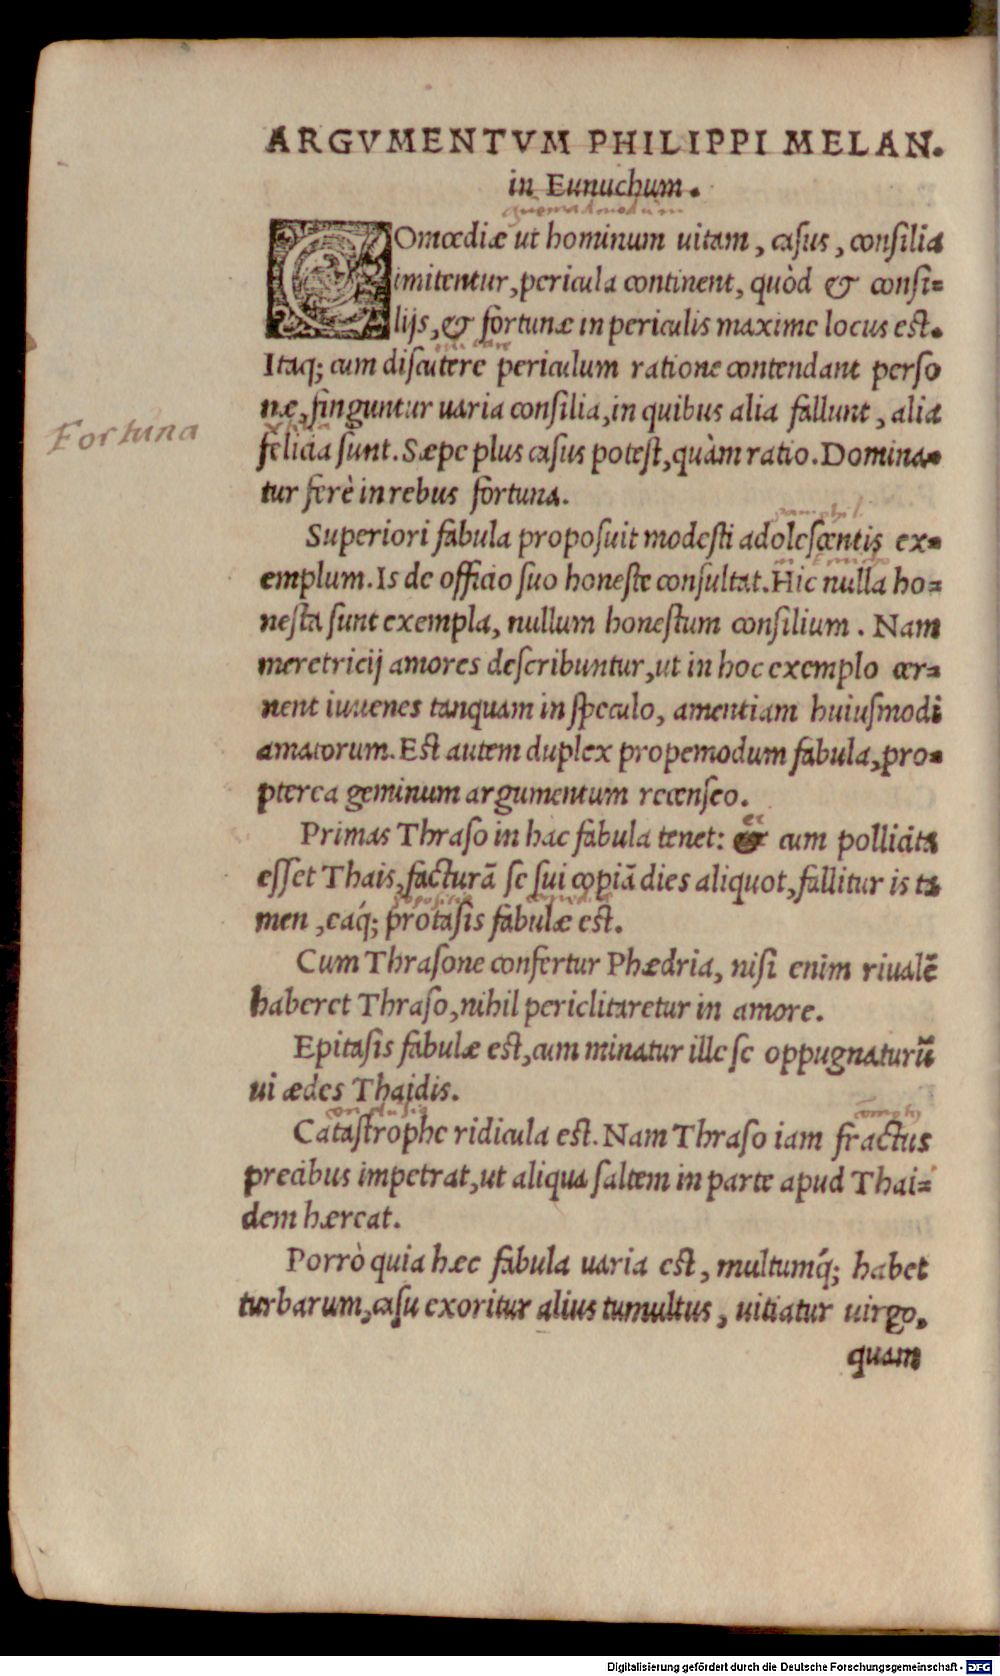 ARGVMENTVM PHILIPPI MELAN.
in Eunuchum.
quemadmodum
COmœdiæ ut hominum uitam, casus, consilia
imitentur, pericula continent, quòd & consi-
lijs, & fortunæ in periculis maxime locus est.
Itaq; cum discutere periculum ratione contendant perso
næ, finguntur uaria consilia, in quibus alia fallunt, alia
Fortuna
felicia sunt. Sæpe plus casus potest, quàm ratio. Domina-
tur ferè in rebus fortuna.
pamphil.
Superiori fabula proposuit modesti adolescentis ex-
emplum. Is de officio suo honeste consultat. Hic nulla ho-
nesta sunt exempla, nullum honestum consilium. Nam
meretricij amores describuntur, ut in hoc exemplo cer-
nent iuuenes tanquam in speculo, amentiam huiusmodi
amatorum. Est autem duplex propemodum fabula, pro-
pterea geminum argumentum recenseo.
et
Primas Thraso in hac fabula tenet: & cum pollicita
esset Thais, facturā se sui copiā dies aliquot, fallitur is ta
men, eaq́; protasis fabulæ est.
Cum Thrasone confertur Phædria, nisi enim riualē
haberet Thraso, nihil periclitaretur in amore.
Epitasis fabulæ est, cum minatur ille se oppugnaturū
ui ædes Thaidis.
conclusio
Catastrophe ridicula est. Nam Thraso iam fractus
precibus impetrat, ut aliqua saltem in parte apud Thai-
dem hæreat.
Porrò quia hæc fabula uaria est, multumq́; habet
turbarum, casu exoritur alius tumultus, uitiatur uirgo,
quam
Digitalisierung gefördert durch die Deutsche Forschungsgemeinschaft - DFG